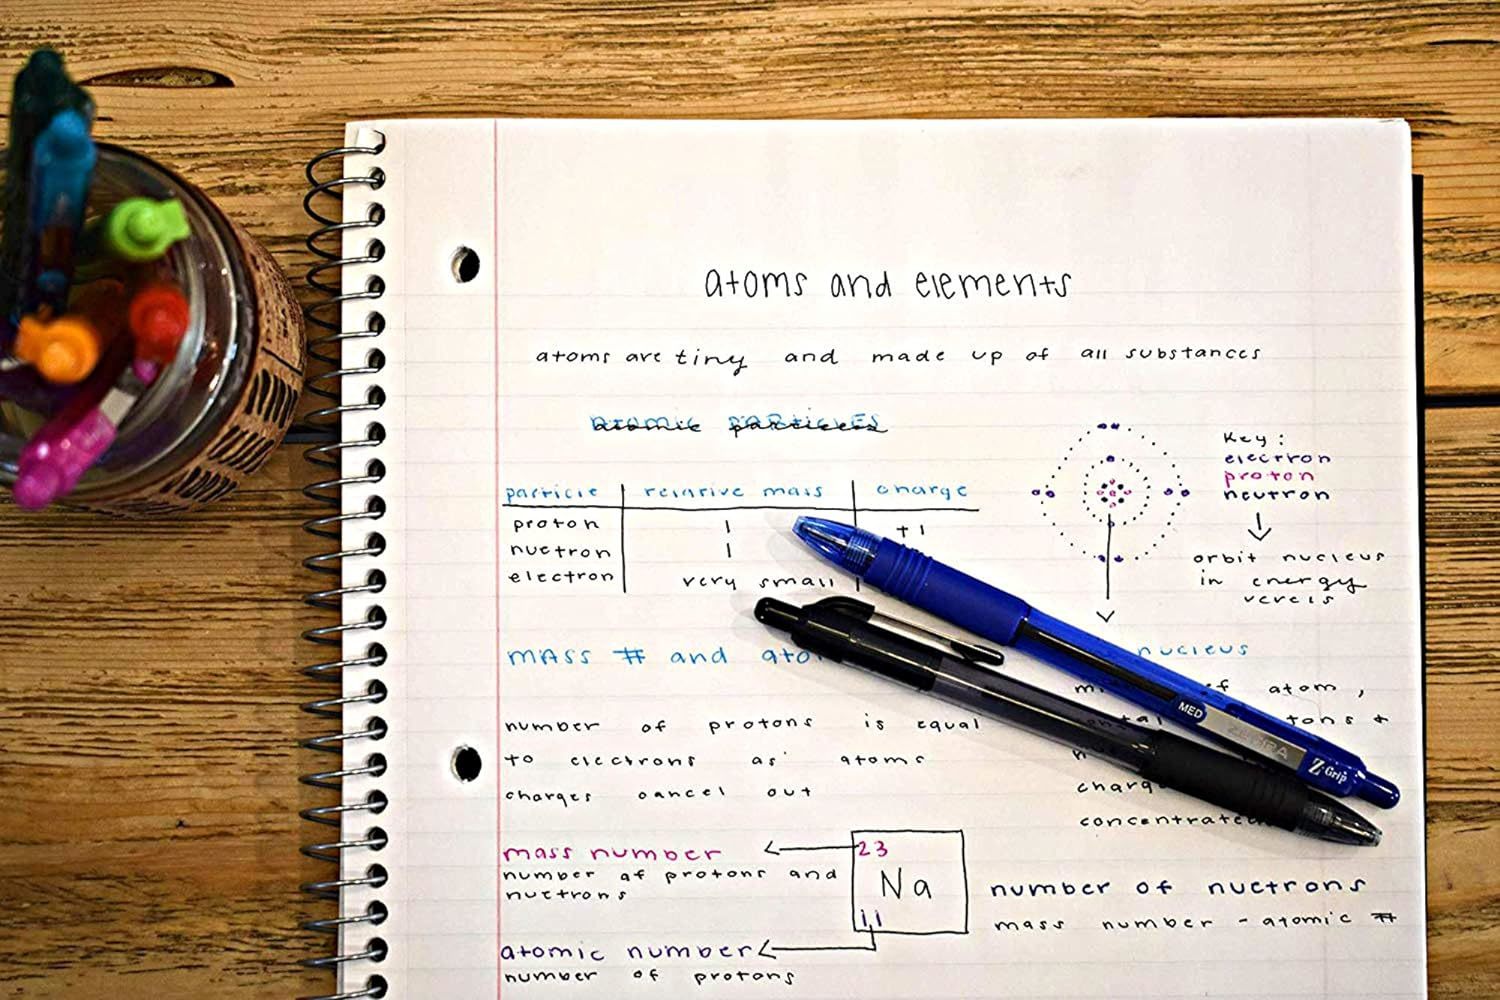 atoms and elements
atoms are tiny and made up of all substances
atomic particles
particle relative mass charge
proton 1 +1
nuetron 1
electron very small
Key:
electron
proton
neutron
orbit nucleus
in energy
mass # and
nucleus
of atom,
number of protons is equal
to electrons as atoms
charges cancel out
MED
ZEBRA
Z-Grip
mass number
number of protons and
nuetrons
23
Na
11
atomic number
number of protons
number of nuetrons
mass number - atomic #